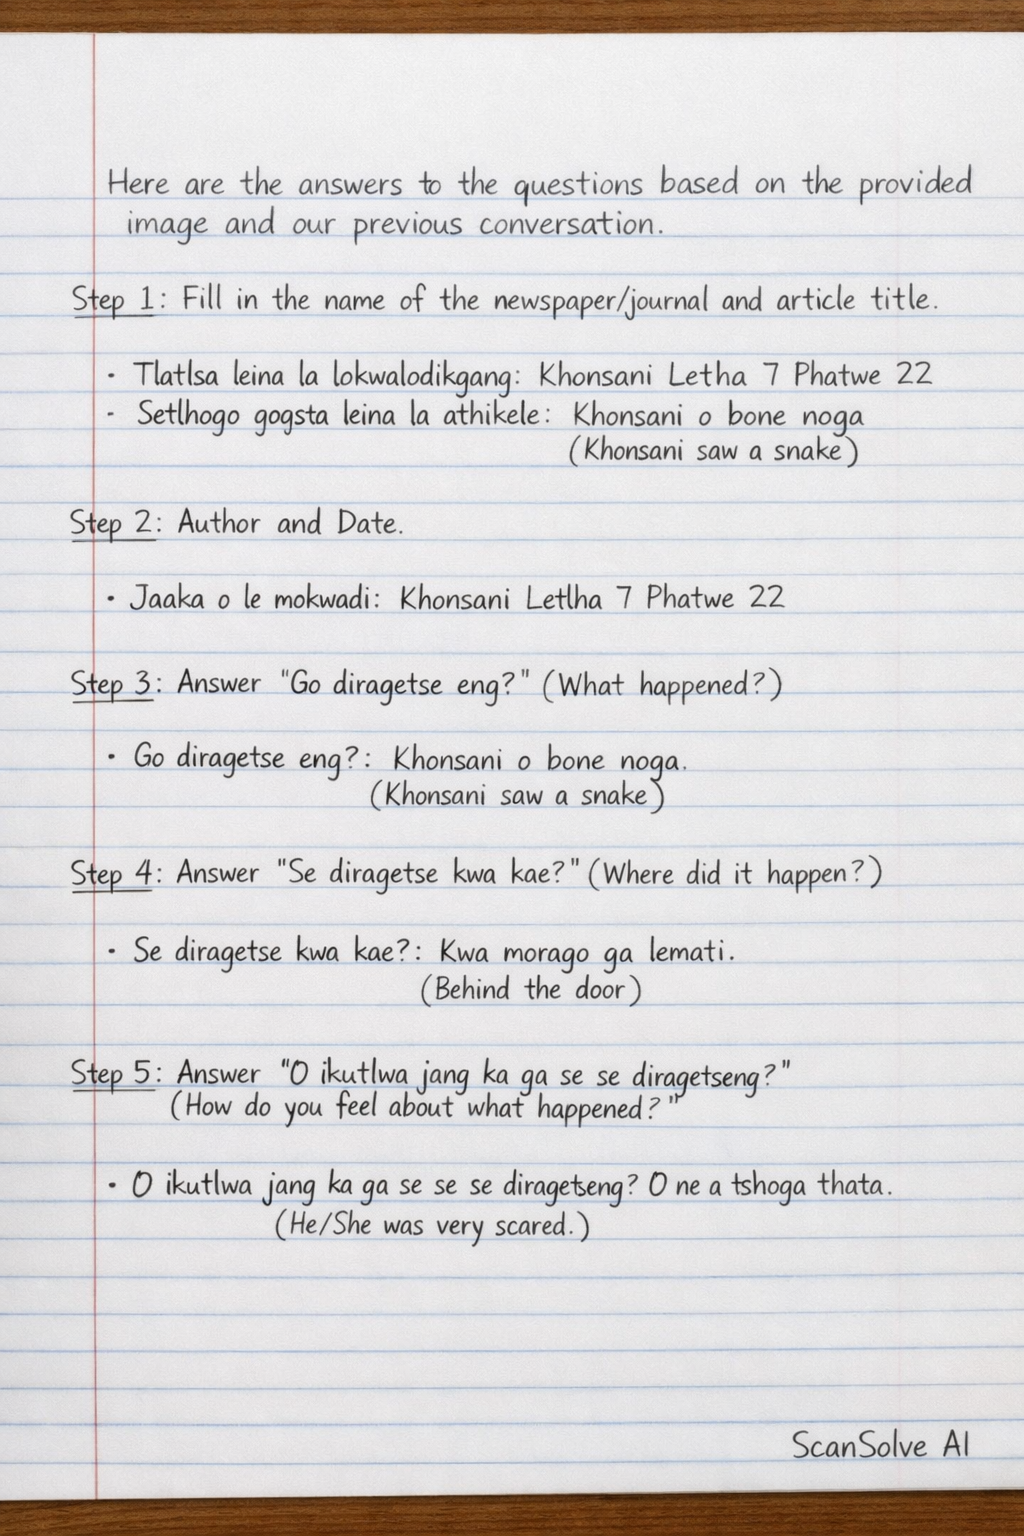 Here are the answers to the questions based on the provided
image and our previous conversation.
Step 1: Fill in the name of the newspaper/journal and article title.
· Tlatlsa leina la lokwalodikgang: Khonsani Letha 7 Phatwe 22
- Setlhogo gogsta leina la athikele: Khonsani o bone noga
(Khonsani saw a snake)
Step 2: Author and Date.
· Jaaka o le mokwadi: Khonsani Letlha 7 Phatwe 22
Step 3: Answer "Go diragetse eng?" (What happened?)
· Go diragetse eng?: Khonsani o bone noga.
(Khonsani saw a snake)
Step 4: Answer "Se diragetse kwa kae?" (Where did it happen?)
· Se diragetse kwa kae?: Kwa morago ga lemati.
(Behind the door)
Step 5: Answer "O ikutlwa jang ka ga se se diragetseng?"
(How do you feel about what happened?"
· O ikutlwa jang ka ga se se se diragetseng? O ne a tshoga thata.
(He/She was very scared.)
ScanSolve AI